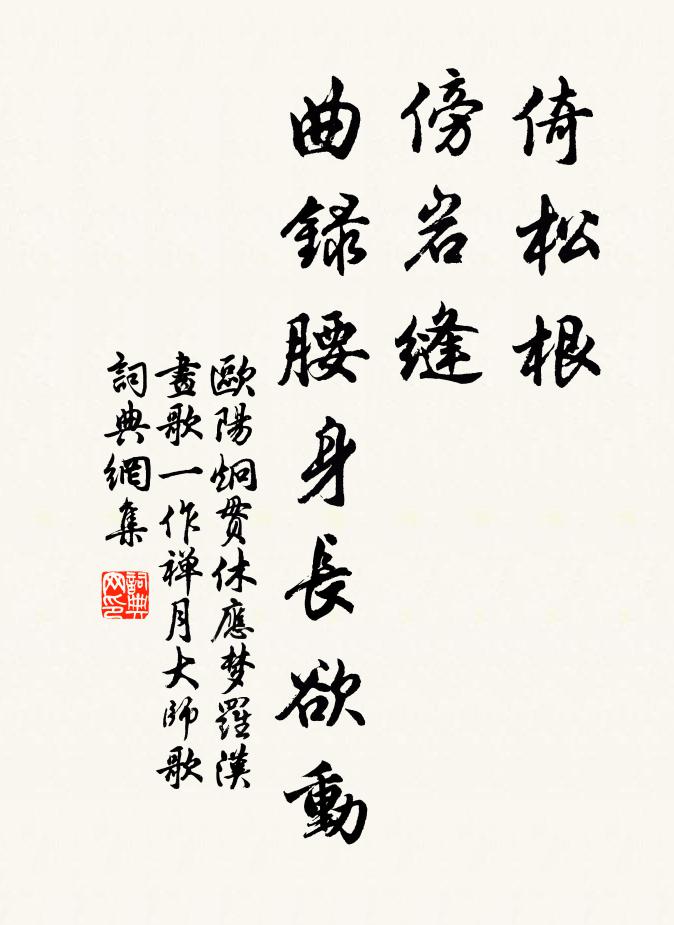 倚松根
傍岩縫
曲錄腰身長欲動
歐陽炯貫休應梦羅漢
畫歌一作禅月大师歌
詞典網集
詞典网印